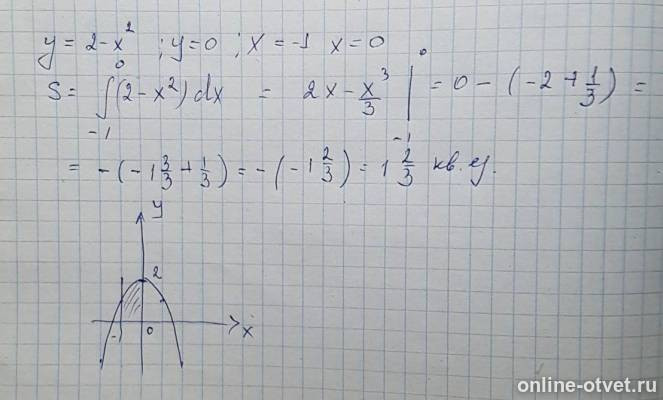 y = 2 - x² ; y = 0 ; x = -1 x = 0
S = ∫₋₁⁰ (2 - x²) dx = 2x - x³/3 |₋₁⁰ = 0 - (-2 + 1/3) =
= -(-1 3/3 + 1/3) = -(-1 2/3) = 1 2/3 кв. ед.
y
2
-1
0
x
online-otvet.ru